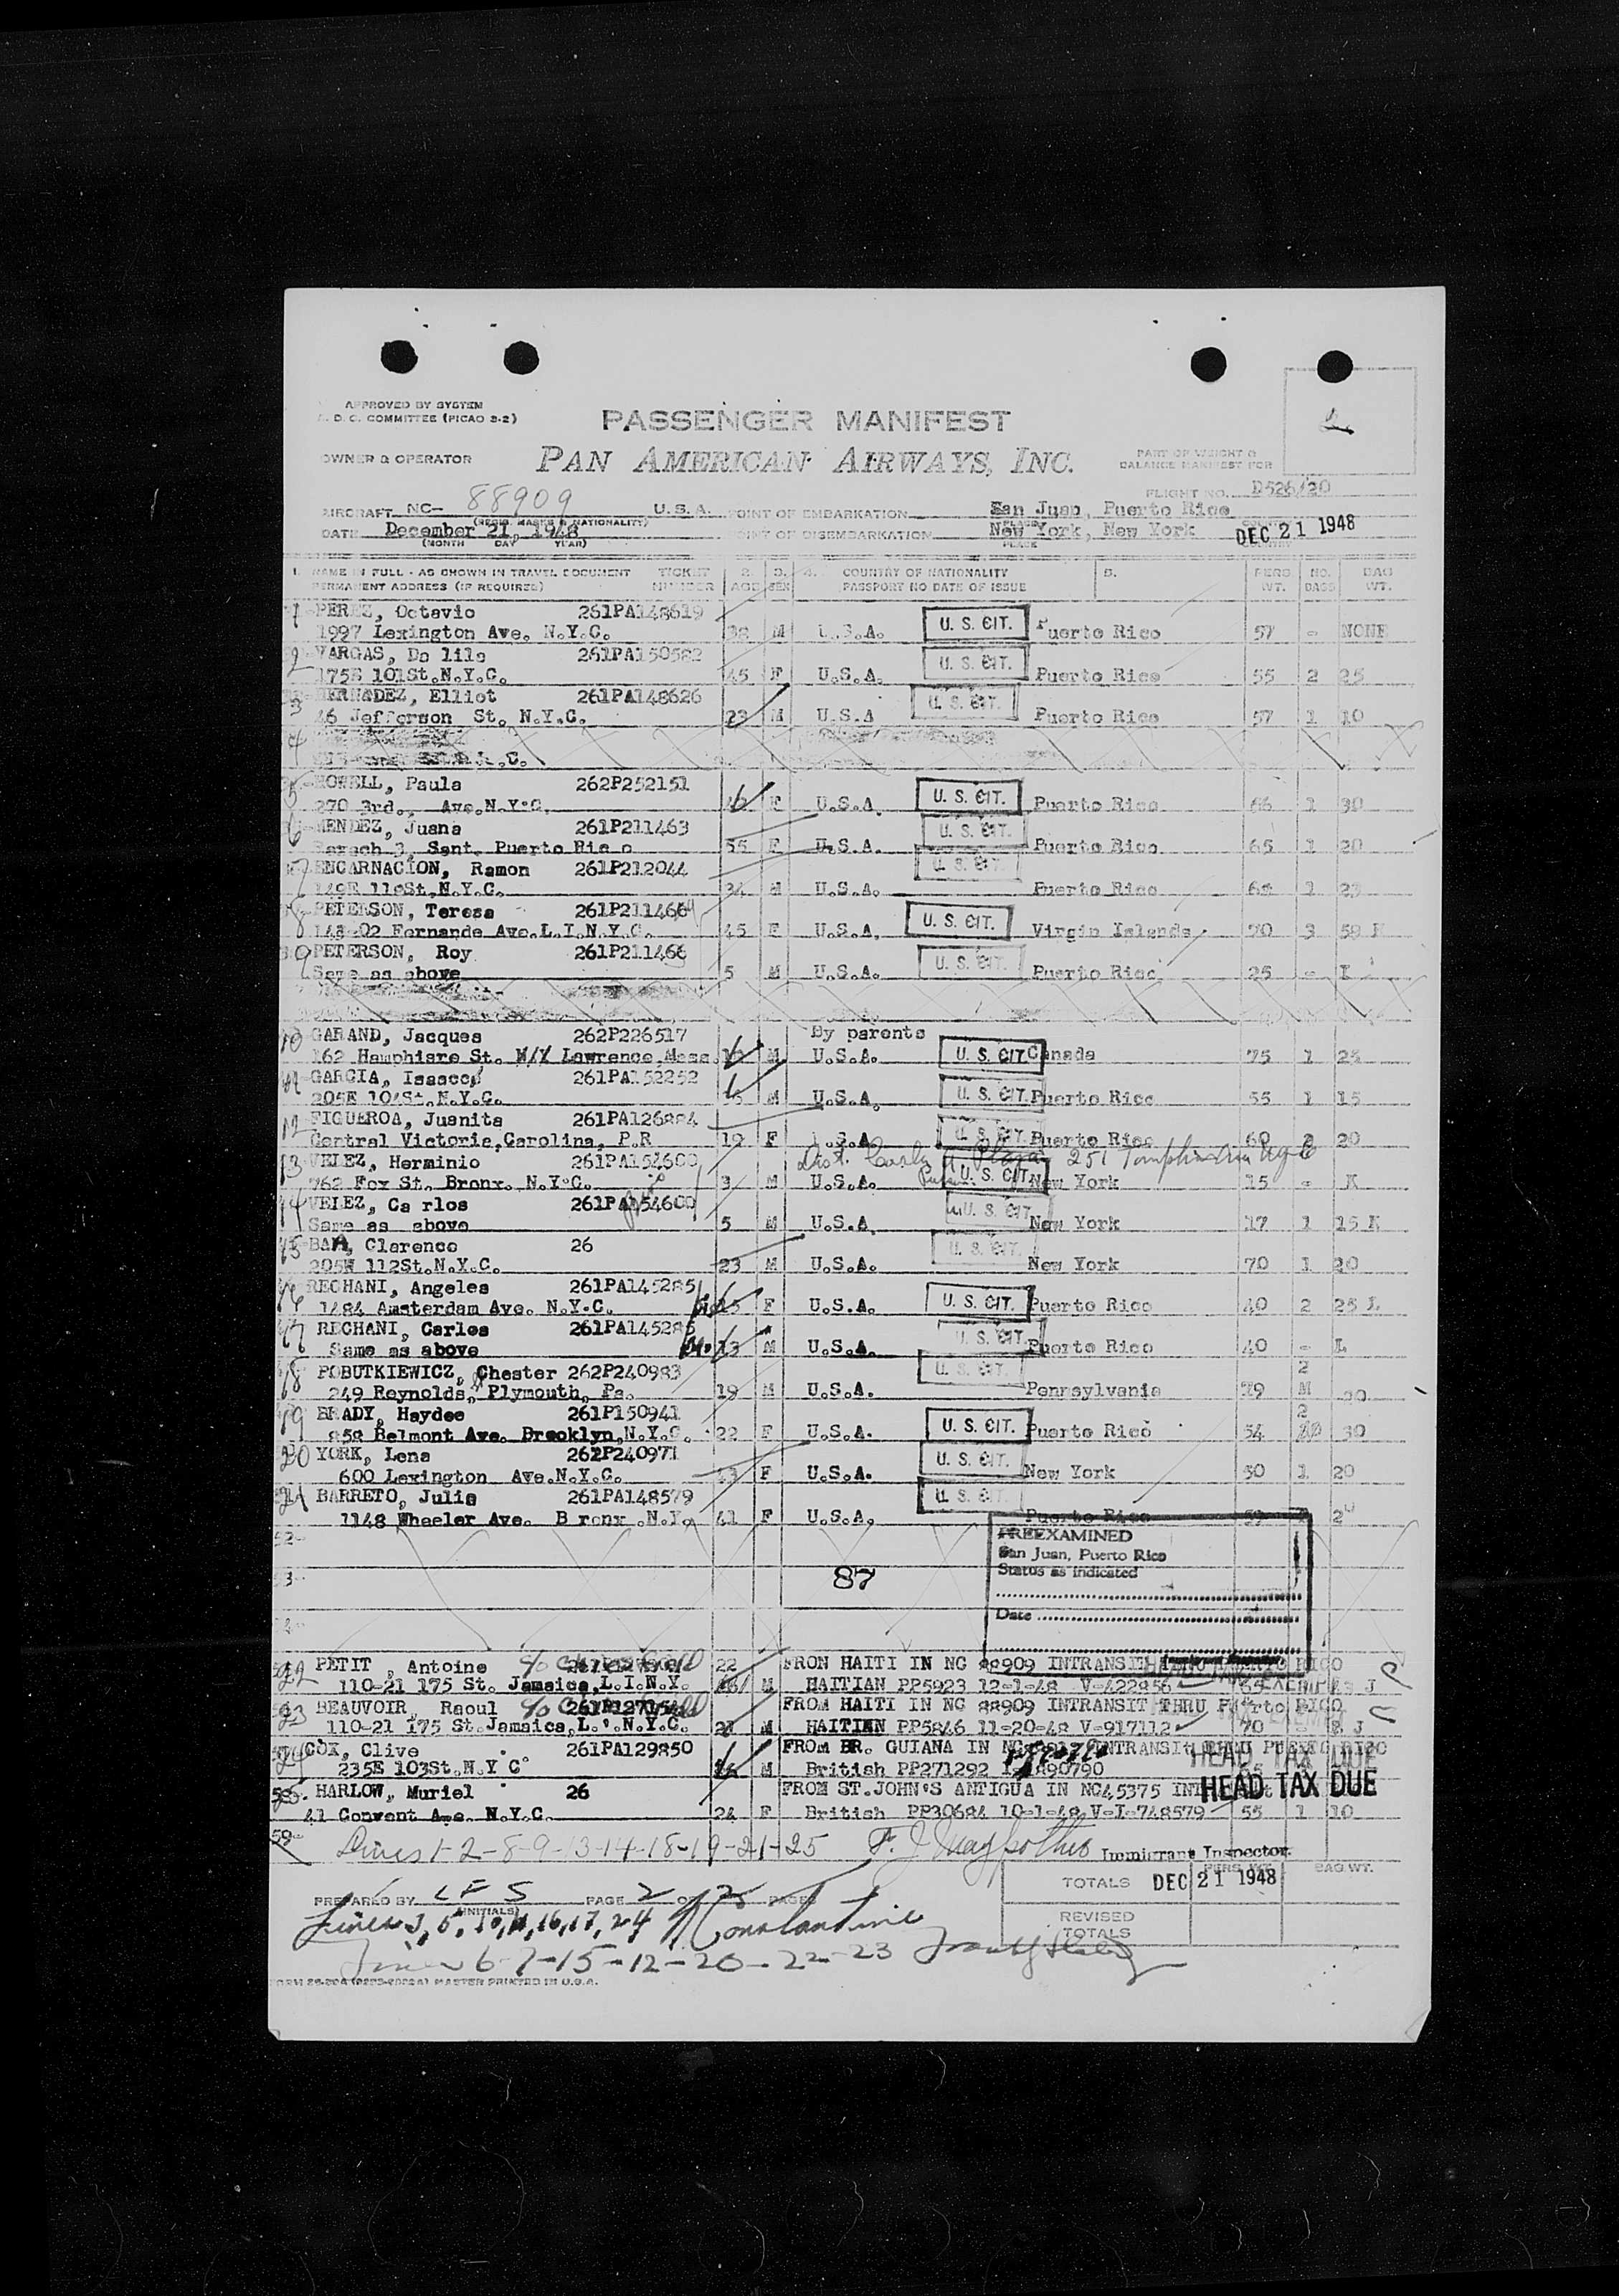 APPROVED BY SYSTEM
D. C. COMMITTEE (PICAO 3-2)
2
PASSENGER MANIFEST
OWNER & OPERATOR PAN AMERICAN AIRWAYS, INC. PART OF WEIGHT &
BALANCE MANIFEST FOR
FLIGHT NO. D526/20
AIRCRAFT NC- 88909 U.S.A. POINT OF EMBARKATION San Juan, Puerto Rico
(REGIS. MARKS & NATIONALITY) PLACE
DATE December 21, 1948 POINT OF DISEMBARKATION New York, New York DEC 21 1948
(MONTH DAY YEAR) PLACE
1. NAME IN FULL - AS SHOWN IN TRAVEL DOCUMENT TICKET 2. 3. 4. COUNTRY OF NATIONALITY 5. PERS NO. BAG
PERMANENT ADDRESS (IF REQUIRED) NUMBER AGE SEX PASSPORT NO DATE OF ISSUE WT. BAGS WT.
1 PEREZ, Octavio 261PA148619
1997 Lexington Ave. N.Y.C. 38 M U.S.A. U. S. CIT. Puerto Rico 57 - NONE
2 VARGAS, Da lila 261PA150582
175E 101St.N.Y.C. 45 F U.S.A. U. S. CIT. Puerto Rico 55 2 25
3 HERNADEZ, Elliot 261PA148626
46 Jefferson St. N.Y.C. 23 M U.S.A U. S. CIT. Puerto Rico 57 1 10
4
5 HOWELL, Paula 262P252151
270 3rd., Ave.N.Y.C. F U.S.A. U. S. CIT. Puerto Rico 66 1 30
6 MENDEZ, Juana 261P211463
Sant. Puerto Ric o 55 F U.S.A. U. S. CIT. Puerto Rico 65 1 20
7 ENCARNACION, Ramon 261P212044
149E 11oSt.N.Y.C. 34 M U.S.A. U. S. CIT. Puerto Rico 1 23
8 PETERSON, Teresa 261P211466
Ave.L.I.N.Y.C. 45 F U.S.A. U. S. CIT. Virgin Islands 70 3 58 K
9 PETERSON, Roy 261P211466
Same as above 5 M U.S.A. U. S. CIT. Puerto Rico 25 - K
10 GARAND, Jacques 262P226517 By parents
162 Hamphiare St. Lawrence Mass. M U.S.A. U. S. CIT Canada 75 1 25
11 GARCIA, Isaac 261PA152252
205E 104St.N.Y.C. M U.S.A. U. S. CIT Puerto Rico 55 1 15
12 FIGUEROA, Juanita 261PA126884
Central Victoria,Carolina, P.R 19 F U.S.A U. S. CIT. Puerto Rico 60 2 20
13 VELEZ, Herminio 261PA154600
762 Fox St. Bronx. N.Y.C. 3 M U.S.A. U. S. CIT New York 15 - K
14 VELEZ, Ca rlos 261PA154600
Same as above 5 M U.S.A U. S. CIT New York 17 1 15 K
15 Clarence 26
205W 112St.N.Y.C. 23 M U.S.A. U. S. CIT. New York 70 1 20
16 RECHANI, Angeles 261PA145285
1484 Amsterdam Ave. N.Y.C. 15 F U.S.A. U. S. CIT. Puerto Rico 40 2 25 L
17 RECHANI, Carlos 261PA145285
Same as above 13 M U.S.A. U. S. CIT. Puerto Rico 40 - L
18 POBUTKIEWICZ, Chester 262P240983 2
249 Reynolds, Plymouth, Pa. 19 M U.S.A. U. S. CIT. Pennsylvania 79 M 30
19 BRADY, Haydee 261P150941 2
858 Belmont Ave. Brooklyn,N.Y.C. 22 F U.S.A. U. S. CIT. Puerto Rico 54 30
20 YORK, Lena 262P240971
600 Lexington Ave.N.Y.C. F U.S.A. U. S. CIT. New York 50 1 20
21 BARRETO, Julia 261PA148579
1148 Wheeler Ave. B ronx .N.Y. 41 F U.S.A. U. S. CIT. Puerto Rico
PREEXAMINED
San Juan, Puerto Rico
Status as indicated
87
Date
22 PETIT , Antoine 22 FROM HAITI IN NC 88909 INTRANSIT
110-21 175 St. Jamaica,L.I.N.Y. M HAITIAN PP5923 12-1-48 V-422856 J
23 BEAUVOIR, Raoul FROM HAITI IN NC 88909 INTRANSIT THRU Puerto RICO
110-21 175 St.Jamaica,L.I.N.Y.C. M HAITIEN PP5846 11-20-48 V-917112 70 - J
24 COX, Clive 261PA129850 FROM BR. GUIANA IN INTRANSIT THRU PUERTO RICO
235E 103St.N.Y C M British PP271292 HEAD TAX DUE
25 HARLOW, Muriel 26 FROM ST.JOHN'S ANTIGUA IN NC45375 HEAD TAX DUE
41 Convent Ave. N.Y.C. 24 F British PP30684 10-1-48 V-I-748579 55 1 10
Lines 1-2-8-9-13-14-18-19-21-25 Immigrant Inspector.
PREPARED BY LFS PAGE 2 OF 2 PAGES TOTALS DEC 21 1948 PERS. WT. BAG WT.
(INITIALS)
Lines 3, 5, 10, 11, 16, 17, 24 Constantine REVISED
TOTALS
Lines 6-7-15-12-20-22-23
MASTER PRINTED IN U.S.A.